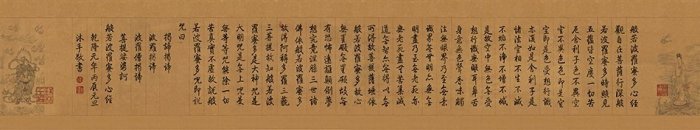 般若波羅蜜多心經
觀自在菩薩行深般
若波羅蜜多時照見
五蘊皆空度一切苦
厄舍利子色不異空
空不異色色即是空
空即是色受想行識
亦復如是舍利子是
諸法空相不生不滅
不垢不淨不增不減
是故空中無色無受
想行識無眼耳鼻舌
身意無色聲香味觸
法無眼界乃至無意
識界無無明亦無無
明盡乃至無老死亦
無老死盡無苦集滅
道無智亦無得以無
所得故菩提薩埵依
般若波羅蜜多故心
無罣礙無罣礙故無
有恐怖遠離顛倒夢
想究竟涅槃三世諸
佛依般若波羅蜜多
故得阿耨多羅三藐
三菩提故知般若波
羅蜜多是大神咒是
大明咒是無上咒是
無等等咒能除一切
苦真實不虛故說般
若波羅蜜多咒即說
咒曰
揭諦揭諦
波羅揭諦
波羅僧揭諦
菩提薩摩訶
般若波羅蜜多心經
乾隆元年丙辰元旦
沐手敬書